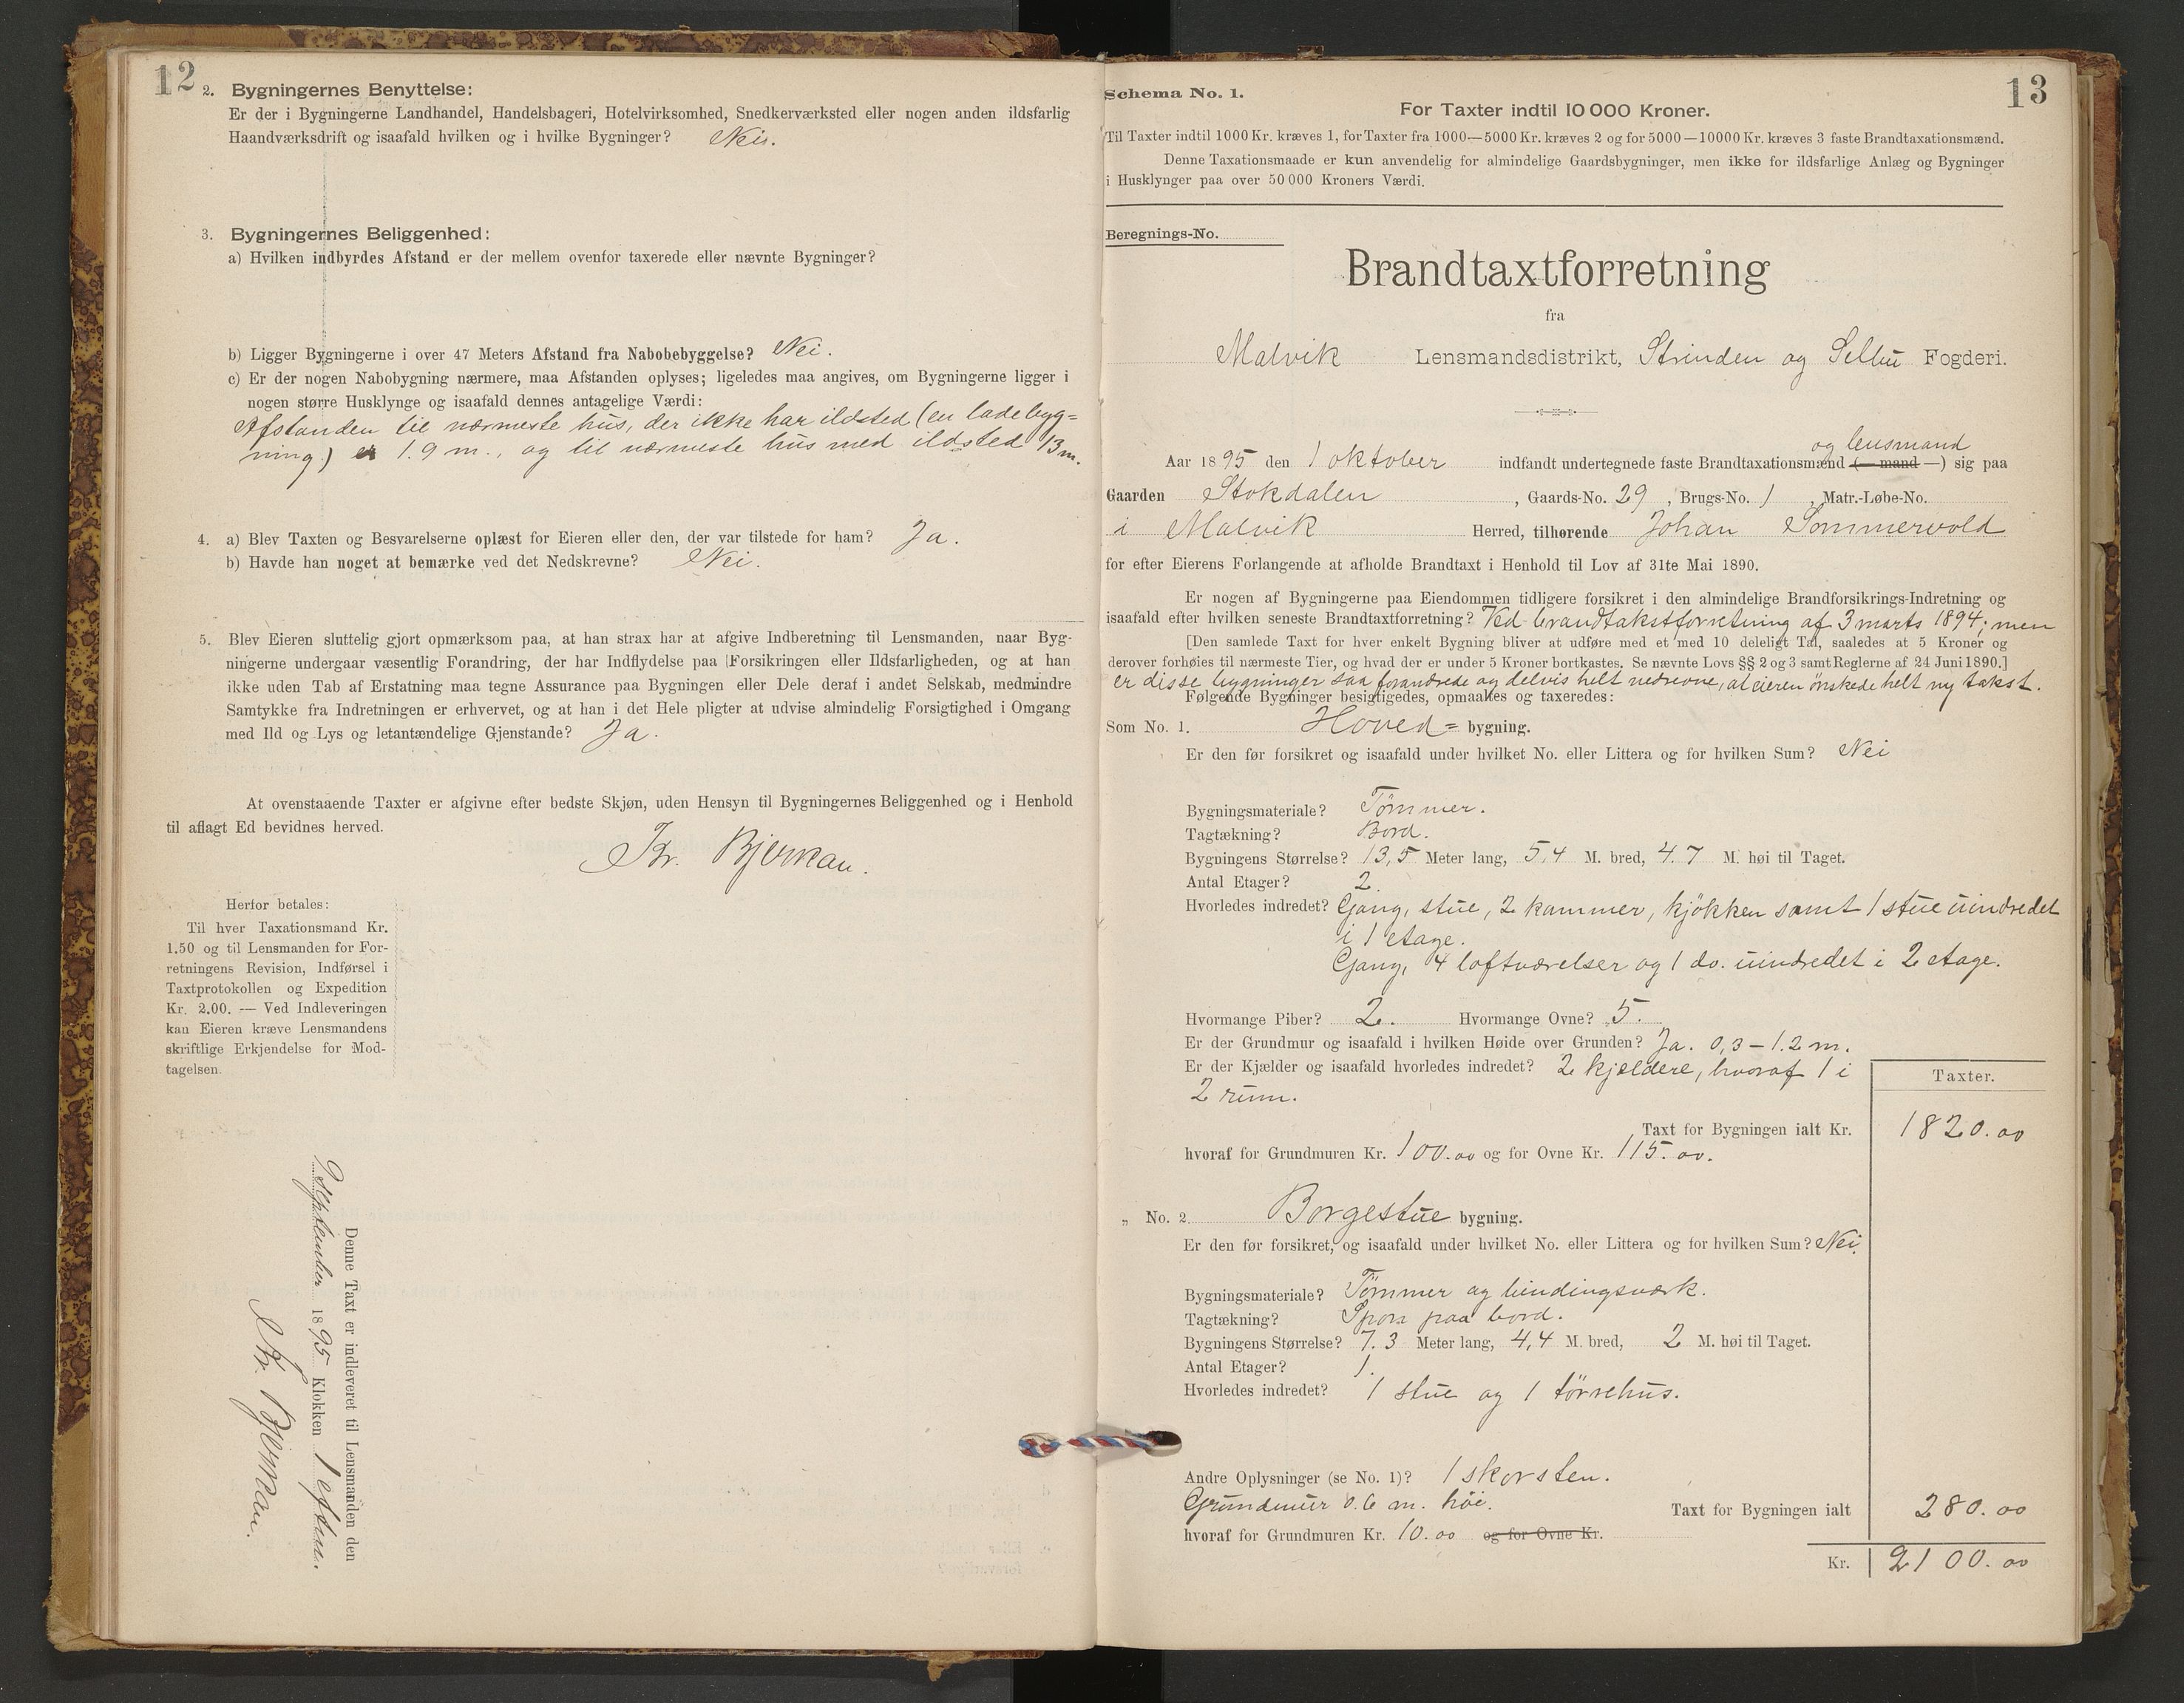 12
2. Bygningernes Benyttelse:
Er der i Bygningerne Landhandel, Handelsbageri, Hotelvirksomhed, Snedkerværksted eller nogen anden ildsfarlig
Haandværksdrift og isaafald hvilken og i hvilke Bygninger? Nei.
3. Bygningernes Beliggenhed:
a) Hvilken indbyrdes Afstand er der mellem ovenfor taxerede eller nævnte Bygninger?
b) Ligger Bygningerne i over 47 Meters Afstand fra Nabobebyggelse? Nei.
c) Er der nogen Nabobygning nærmere, maa Afstanden oplyses; ligeledes maa angives, om Bygningerne ligger i
nogen større Husklynge og isaafald dennes antagelige Værdi:
Afstanden til nærmeste hus, der ikke har ildsted (en ladebyg=
ning) er 1.9 m., og til nærmeste hus med ildsted 13 m.
4. a) Blev Taxten og Besvarelserne oplæst for Eieren eller den, der var tilstede for ham? Ja.
b) Havde han noget at bemærke ved det Nedskrevne? Nei.
5. Blev Eieren sluttelig gjort opmærksom paa, at han strax har at afgive Indberetning til Lensmanden, naar Byg-
ningerne undergaar væsentlig Forandring, der har Indflydelse paa Forsikringen eller Ildsfarligheden, og at han
ikke uden Tab af Erstatning maa tegne Assurance paa Bygningen eller Dele deraf i andet Selskab, medmindre
Samtykke fra Indretningen er erhvervet, og at han i det Hele pligter at udvise almindelig Forsigtighed i Omgang
med Ild og Lys og letantændelige Gjenstande? Ja.
At ovenstaaende Taxter er afgivne efter bedste Skjøn, uden Hensyn til Bygningernes Beliggenhed og i Henhold
til aflagt Ed bevidnes herved.
Kr. Bjerkan.
Herfor betales:
Til hver Taxationsmand Kr.
1.50 og til Lensmanden for For-
retningens Revision, Indførsel i
Taxtprotokollen og Expedition
Kr. 2.00. — Ved Indleveringen
kan Eieren kræve Lensmandens
skriftlige Erkjendelse for Mod-
tagelsen.
Denne Taxt er indleveret til Lensmanden den
9 september 1895 Klokken 1 efterm.
Kr. Bjerkan.
13
Schema No. 1.
For Taxter indtil 10 000 Kroner.
Til Taxter indtil 1000 Kr. kræves 1, for Taxter fra 1000—5000 Kr. kræves 2 og for 5000—10000 Kr. kræves 3 faste Brandtaxationsmænd.
Denne Taxationsmaade er kun anvendelig for almindelige Gaardsbygninger, men ikke for ildsfarlige Anlæg og Bygninger
i Husklynger paa over 50 000 Kroners Værdi.
Beregnings-No.
Brandtaxtforretning
fra
Malvik Lensmandsdistrikt, Strinden og Selbu Fogderi.
og lensmand
Aar 1895 den 1 oktober indfandt undertegnede faste Brandtaxationsmænd (— mand —) sig paa
Gaarden Stokdalen, Gaards-No. 29, Brugs-No. 1, Matr.-Løbe-No.
i Malvik Herred, tilhørende Johan Sommervold
for efter Eierens Forlangende at afholde Brandtaxt i Henhold til Lov af 31te Mai 1890.
Er nogen af Bygningerne paa Eiendommen tidligere forsikret i den almindelige Brandforsikrings-Indretning og
isaafald efter hvilken seneste Brandtaxtforretning? Ved brandtakstforretning af 3 marts 1894; men
[Den samlede Taxt for hver enkelt Bygning bliver at udføre med et med 10 deleligt Tal, saaledes at 5 Kroner og
derover forhøies til nærmeste Tier, og hvad der er under 5 Kroner bortkastes. Se nævnte Lovs §§ 2 og 3 samt Reglerne af 24 Juni 1890.]
er disse bygninger saa forandrede og delvis helt nedrevne, at eieren ønskede helt ny takst.
Følgende Bygninger besigtigedes, opmaaltes og taxeredes:
Som No. 1. Hoved= bygning.
Er den før forsikret og isaafald under hvilket No. eller Littera og for hvilken Sum? Nei
Bygningsmateriale? Tømmer.
Tagtækning? Bord.
Bygningens Størrelse? 13,5 Meter lang, 5,4 M. bred, 4.7 M. høi til Taget.
Antal Etager? 2.
Hvorledes indredet? Gang, stue, 2 kammer, kjøkken samt 1 stue uindredet
i 1 etage.
Gang, 4 loftværelser og 1 do. uindredet i 2 etage.
Hvormange Piber? 2. Hvormange Ovne? 5.
Er der Grundmur og isaafald i hvilken Høide over Grunden? Ja. 0,3 – 1.2 m.
Er der Kjælder og isaafald hvorledes indredet? 2 kjældere, hvoraf 1 i
2 rum.
Taxter.
Taxt for Bygningen ialt Kr. 1820.00
hvoraf for Grundmuren Kr. 100.00 og for Ovne Kr. 115.00.
„ No. 2. Borgestue bygning.
Er den før forsikret, og isaafald under hvilket No. eller Littera og for hvilken Sum? Nei.
Bygningsmateriale? Tømmer og bindingsværk.
Tagtækning? Spon paa bord.
Bygningens Størrelse? 7.3 Meter lang, 4,4 M. bred, 2 M. høi til Taget.
Antal Etager? 1.
Hvorledes indredet? 1 stue og 1 tørrehus.
Andre Oplysninger (se No. 1)? 1 skorsten.
Grundmur 0.6 m. høi. Taxt for Bygningen ialt 280.00
hvoraf for Grundmuren Kr. 10.00 og for Ovne Kr.
Kr. 2100.00